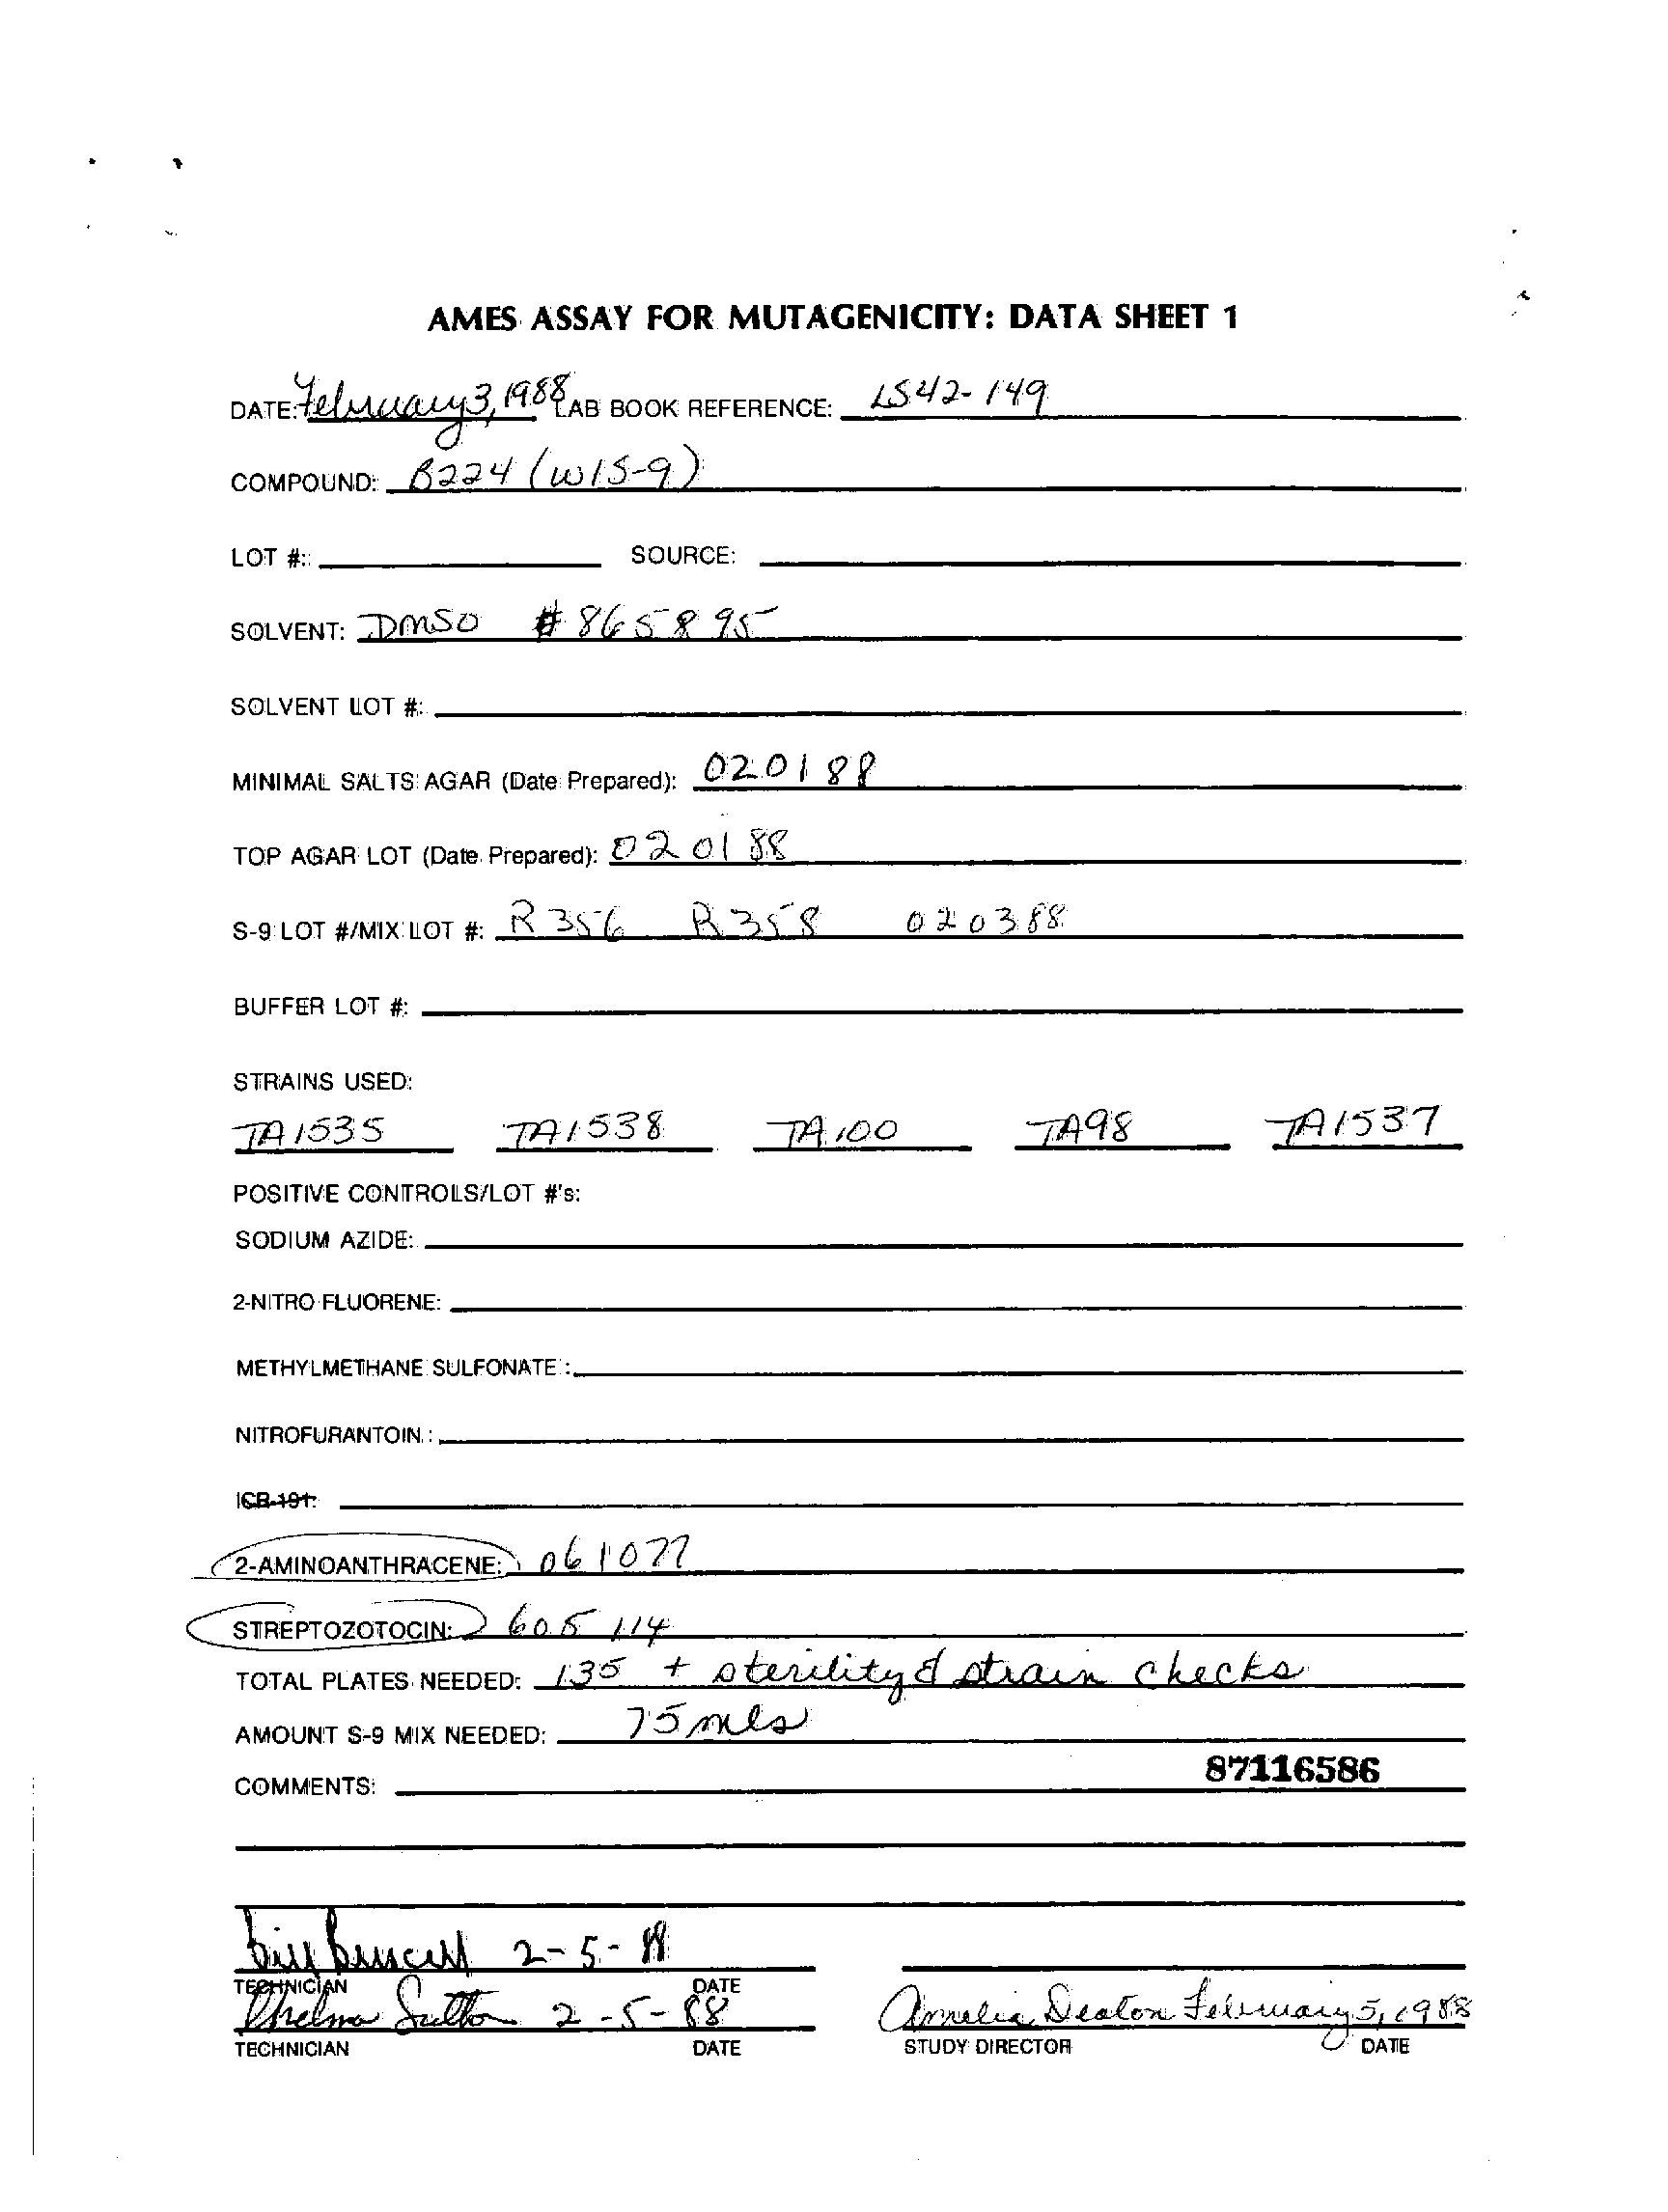 AMES ASSAY FOR MUTAGENICITY: DATA SHEET 1
DATE: February 3, 1988 LAB BOOK REFERENCE: LS42-149
COMPOUND: B224 (WIS-9)
LOT #: SOURCE:
SOLVENT: DMSO # 865895
SOLVENT LOT #:
MINIMAL SALTS AGAR (Date Prepared): 020188
TOP AGAR LOT (Date Prepared): 020188
S-9 LOT #/MIX LOT #: R356 R358 020388
BUFFER LOT #:
STRAINS USED:
TA1535 TA1538 TA100 TA98 TA1537
POSITIVE CONTROLS/LOT #'s:
SODIUM AZIDE:
2-NITRO FLUORENE:
METHYLMETHANE SULFONATE :
NITROFURANTOIN :
ICR-191:
2-AMINOANTHRACENE: 061077
STREPTOZOTOCIN: 605114
TOTAL PLATES NEEDED: 135 + sterility & strain checks
AMOUNT S-9 MIX NEEDED: 75 mls
87116586
COMMENTS:
Bill 2-5-88
TECHNICIAN DATE
Thelma Sutton 2-5-88 Amelia Deaton February 5, 1988
TECHNICIAN DATE STUDY DIRECTOR DATE